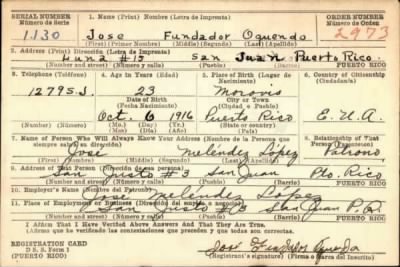 SERIAL NUMBER 1. Name (Print) (Nombre) (Letra de Imprenta) ORDER NUMBER
Número de Serie Número de Orden
1130 Jose Fundador Oquendo 2973
(First) (Primer Nombre) (Middle) (Segundo) (Last) (Apellido)
2. Address (Print) (Dirección) (Letra de Imprenta)
Luna #15 San Juan Puerto Rico
(Number and street) (Número y calle) (Town) (Pueblo) (Barrio) PUERTO RICO
3. Telephone (Teléfono) 4. Age in Years (Edad) 5. Place of Birth (Lugar de Nacimiento) 6. Country of Citizenship (Ciudadanía)
1279 S.J. 23 Morovis
Date of Birth (Fecha de Nacimiento) City or Town (Ciudad o Pueblo)
Oct. 6 1916 Puerto Rico E.U.A.
(State or country)
7. Name of Person Who Will Always Know Your Address (Nombre de la Persona que siempre sabrá su dirección) 8. Relationship of That Person
Jose Melendez Lopez Patrono
(Middle) (Segundo) (Last) (Apellido)
9. Address of That Person (Dirección de esa persona)
San Justo #3 San Juan Pto. Rico
(Number and street) (Número y calle) (Town) (Pueblo) (Barrio) PUERTO RICO
10. Employer's Name (Nombre del Patrono)
Jose Melendez Lopez
11. Place of Employment or Business
San Justo #3 San Juan P.R.
(Number and street) (Número y calle) (Town) (Pueblo) (Barrio) PUERTO RICO
I Affirm That I Have Verified Above Answers and That They Are True.
Afirmo que he verificado las contestaciones que preceden y que todas son correctas.
REGISTRATION CARD
D S S Form 1
(PUERTO RICO)
Jose Fundador Oquendo
(Registrant's signature) (Firma y Marca del Inscrito)